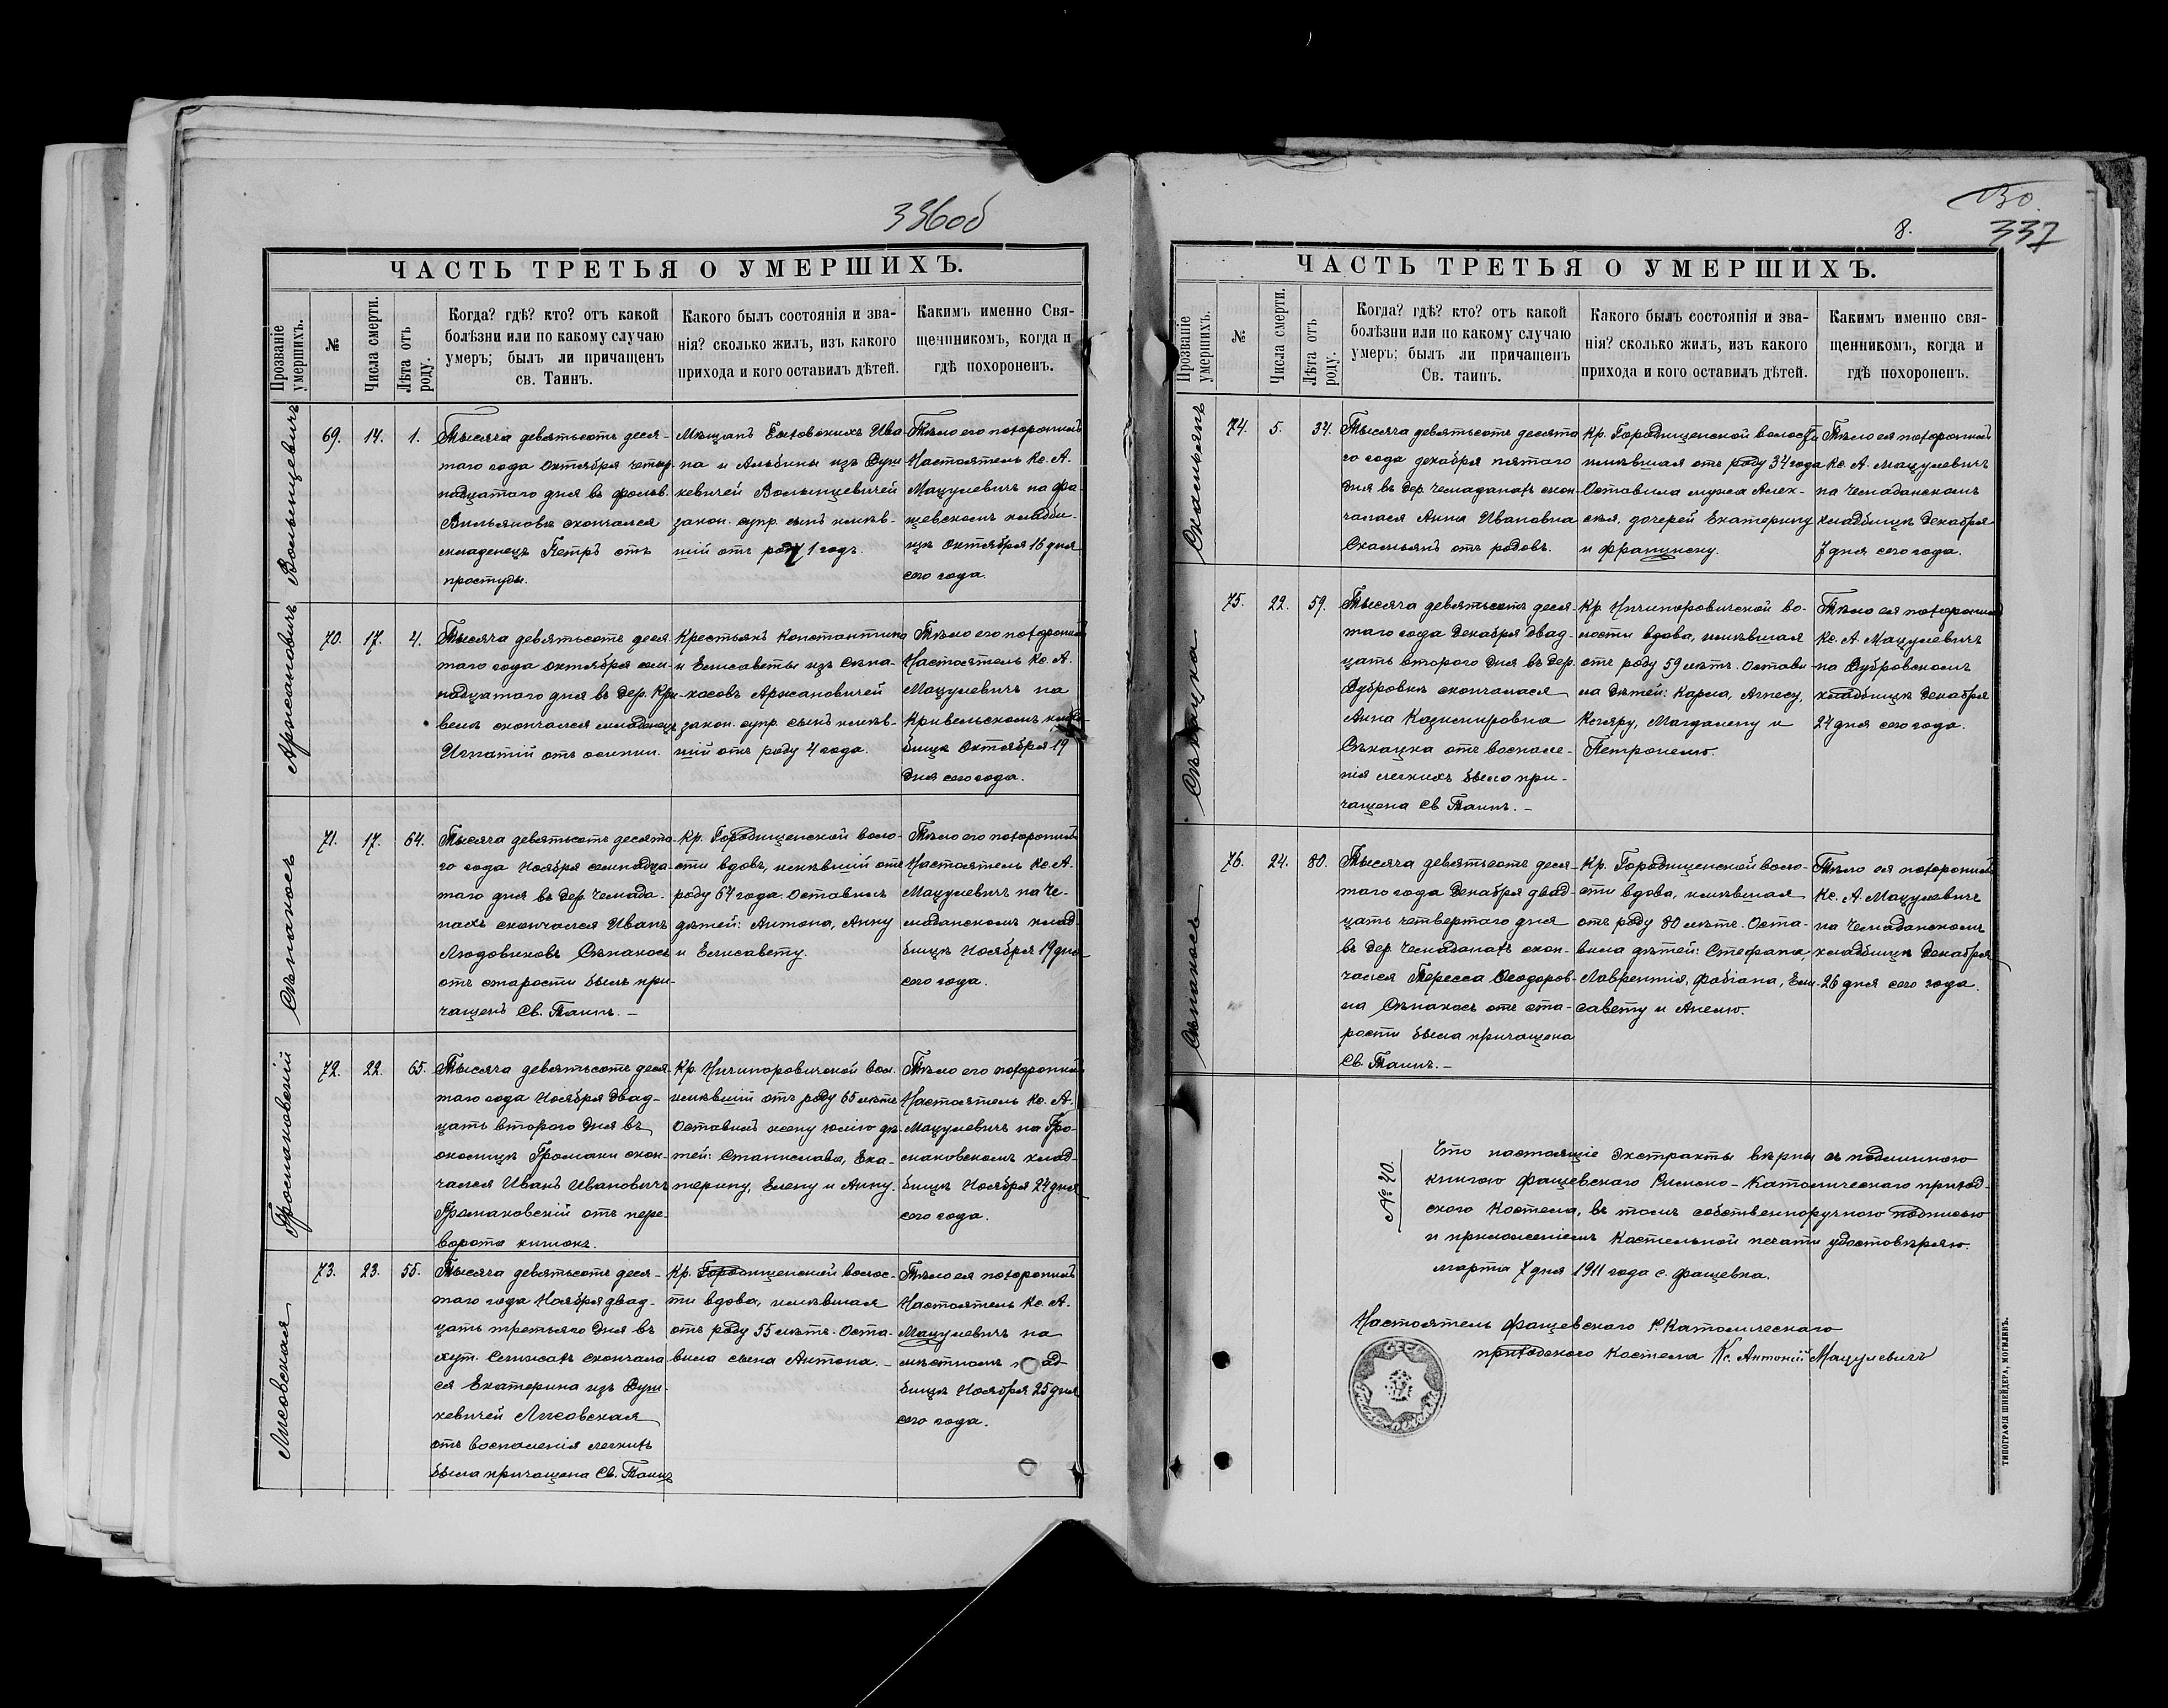 336об
ЧАСТЬ ТРЕТЬЯ О УМЕРШИХЪ.
Прозваніе умершихъ.
№
Числа смерти.
Лѣта отъ роду.
Когда? гдѣ? кто? отъ какой
болѣзни или по какому случаю
умеръ; былъ ли причащенъ
св. Таинъ.
Какого былъ состоянія и зва-
нія? сколько жилъ, изъ какого
прихода и кого оставилъ дѣтей.
Какимъ именно Свя-
щенникомъ, когда и
гдѣ похороненъ.
Волынцевичъ
69.
14.
1.
Тысяча девятьсотъ деся-
таго года Октября четыр-
надцатаго дня въ фольв.
Вильяновѣ скончался
младенецъ Петръ отъ
простуды.
Мѣщанъ Быховскихъ Ива-
на и Альбины изъ Душ
кевичей Волынцевичей
закон. супр. сынъ имѣв-
шій отъ роду 1 годъ.
Тѣло его похоронилъ
Настоятель Кс. А.
Мацулевичъ на Фа-
щевскомъ кладби-
щѣ Октября 16 дня
сего года.
Аржановичъ
70.
17.
4.
Тысяча девятьсотъ деся
таго года Октября сем-
надцатаго дня въ дер. Кри-
велѣ скончался младенецъ
Игнатій отъ оспы.
Крестьянъ Константина
и Елисаветы изъ Сѣна-
косовъ Аржановичей
закон. супр. сынъ имѣв-
шій отъ роду 4 года.
Тѣло его похоронилъ
Настоятель Кс. А.
Мацулевичъ на
Кривельскомъ клад-
бищѣ Октября 19
дня сего года.
Сѣнакосъ
71.
17.
64.
Тысяча девятьсотъ десята-
го года Ноября семнадца-
таго дня въ дер. Чемода-
нахъ скончался Иванъ
Людовиковъ Сѣнакосъ
отъ старости былъ при-
чащенъ Св. Таинъ. –
Кр. Городищенской воло-
сти вдовъ, имѣвшій отъ
роду 64 года. Оставилъ
дѣтей: Антона, Анну
и Елисавету.
Тѣло его похоронилъ
Настоятель Кс. А.
Мацулевичъ на Че-
маданскомъ клад-
бищѣ Ноября 19 дня
сего года.
Громаковскій
72.
22.
65.
Тысяча девятьсотъ деся-
таго года Ноября двад-
цать второго дня въ
околицѣ Громаки скон-
чался Иванъ Ивановичъ
Громаковскій отъ пере-
ворота кишокъ.
Кр. Ничипоровичской вол.
имѣвшій отъ роду 65 лѣтъ
Оставилъ жену Юлію дѣ-
тей: Станислава, Ека-
терину, Елену и Анну.
Тѣло его похоронилъ
Настоятель Кс. А.
Мацулевичъ на Гро-
маковскомъ клад-
бищѣ Ноября 24 дня
сего года.
Лисовская
73.
23.
55.
Тысяча девятьсотъ деся-
таго года Ноября двад-
цать третьяго дня въ
хут. скончала
ся Екатерина изъ Душ-
кевичей Лисовская
отъ воспаленія легкихъ
была причащена Св. Таинъ
Кр. Городищенской волос-
ти вдова, имѣвшая
отъ роду 55 лѣтъ. Оста-
вила сына Антона. –
Тѣло ея похоронилъ
Настоятель Кс. А.
Мацулевичъ на
мѣстномъ клад-
бищѣ Ноября 25 дня
сего года.
130.
8.
337
ЧАСТЬ ТРЕТЬЯ О УМЕРШИХЪ.
Прозваніе умершихъ.
№
Числа смерти.
Лѣта отъ роду.
Когда? гдѣ? кто? отъ какой
болѣзни или по какому случаю
умеръ; былъ ли причащенъ
Св. таинъ.
Какого былъ состоянія и зва-
нія? сколько жилъ, изъ какого
прихода и кого оставилъ дѣтей.
Какимъ именно свя-
щенникомъ, когда и
гдѣ похороненъ.
Скамьянъ
74.
5.
34.
Тысяча девятьсотъ десята
го года декабря пятаго
дня въ дер. Чемаданахъ скон-
чалася Анна Ивановна
Скамьянъ отъ родовъ.
Кр. Городищенской волости
имѣвшая отъ роду 34 года
Оставила мужа Алек-
сѣя, дочерей Екатерину
и Францишку.
Тѣло ея похоронилъ
Кс. А. Мацулевичъ
на Чемаданскомъ
кладбищѣ Декабря
7 дня сего года.
Сѣкацка
75.
22.
59.
Тысяча девятьсотъ деся-
таго года Декабря двад-
цать второго дня въ дер.
Дубровкѣ скончалася
Анна Казимировна
Сѣкацка отъ воспале-
нія легкихъ была при-
чащена Св. Таинъ. –
Кр. Ничипоровичской во-
лости вдова, имѣвшая
отъ роду 59 лѣтъ. Остави
ла дѣтей: Карла, Агнесу,
Магдалену и
Петронелю.
Тѣло ея похоронилъ
Кс. А. Мацулевичъ
на Дубровскомъ
кладбищѣ Декабря
24 дня сего года.
Сѣнакосъ
76.
24.
80.
Тысяча девятьсотъ деся-
таго года Декабря двад-
цать четвертаго дня
въ дер. Чемаданахъ скон-
чался Тересса Ѳеодоров-
на Сѣнакосъ отъ ста-
рости была причащена
Св. Таинъ. –
Кр. Городищенской воло-
сти вдова, имѣвшая
отъ роду 80 лѣтъ. Оста-
вила дѣтей: Стефана,
Лаврентія, Фабіана, Ели-
савету и Анелю.
Тѣло ея похоронилъ
Кс. А. Мацулевичъ
на Чемаданскомъ
кладбищѣ Декабря
26 дня сего года.
№ 40.
Что настоящіе экстракты вѣрны съ подлинною
книгою Фащевскаго Римско-Католическаго приход-
скаго Костела, въ томъ собственноручною подписью
и приложеніемъ Костельной печати удостовѣряю.
Марта 7 дня 1911 года с. Фащевка.
Настоятель Фащевскаго Р. Католическаго
приходскаго Костела Кс. Антоній Мацулевичъ
ТИПОГРАФІЯ ШНЕЙДЕРА, МОГИЛЕВЪ.